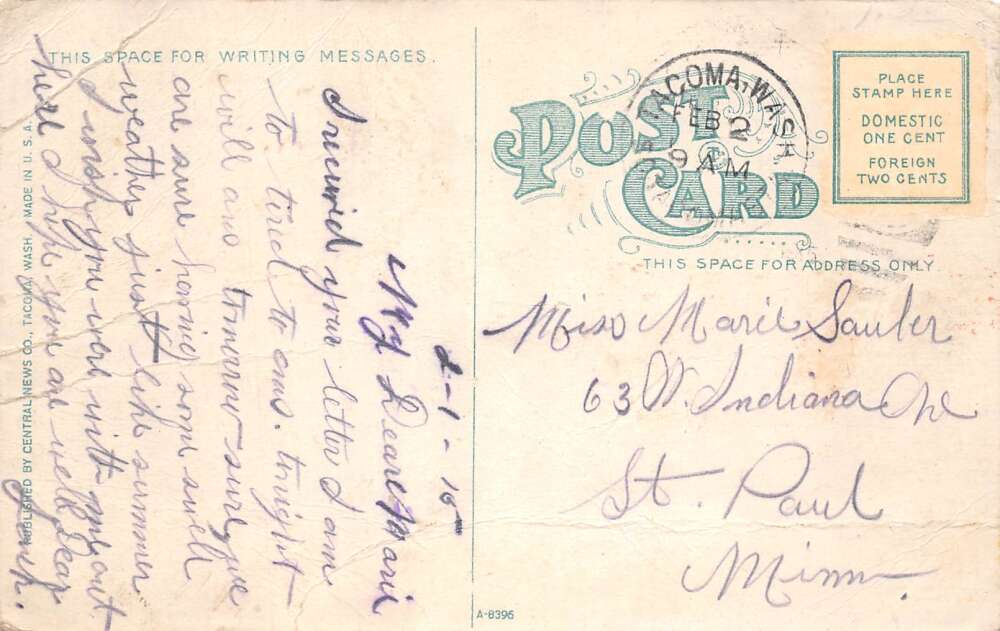 THIS SPACE FOR WRITING MESSAGES.
2-1-15
My Dear Marie
I recivid your letter I am
to tired to ans. tonight
will ans tomorrow sure, we
are sure having some swell
weather just like summer
I wish you were with me out
here I hope you are well Dear
PUBLISHED BY CENTRAL NEWS CO., TACOMA, WASH. MADE IN U.S.A.
POST CARD
TACOMA, WASH
FEB 2
9 AM
PLACE
STAMP HERE
DOMESTIC
ONE CENT
FOREIGN
TWO CENTS
THIS SPACE FOR ADDRESS ONLY
Miss Marie Sauter
63 W. Indiana Ave
St. Paul
Minn
A-8396